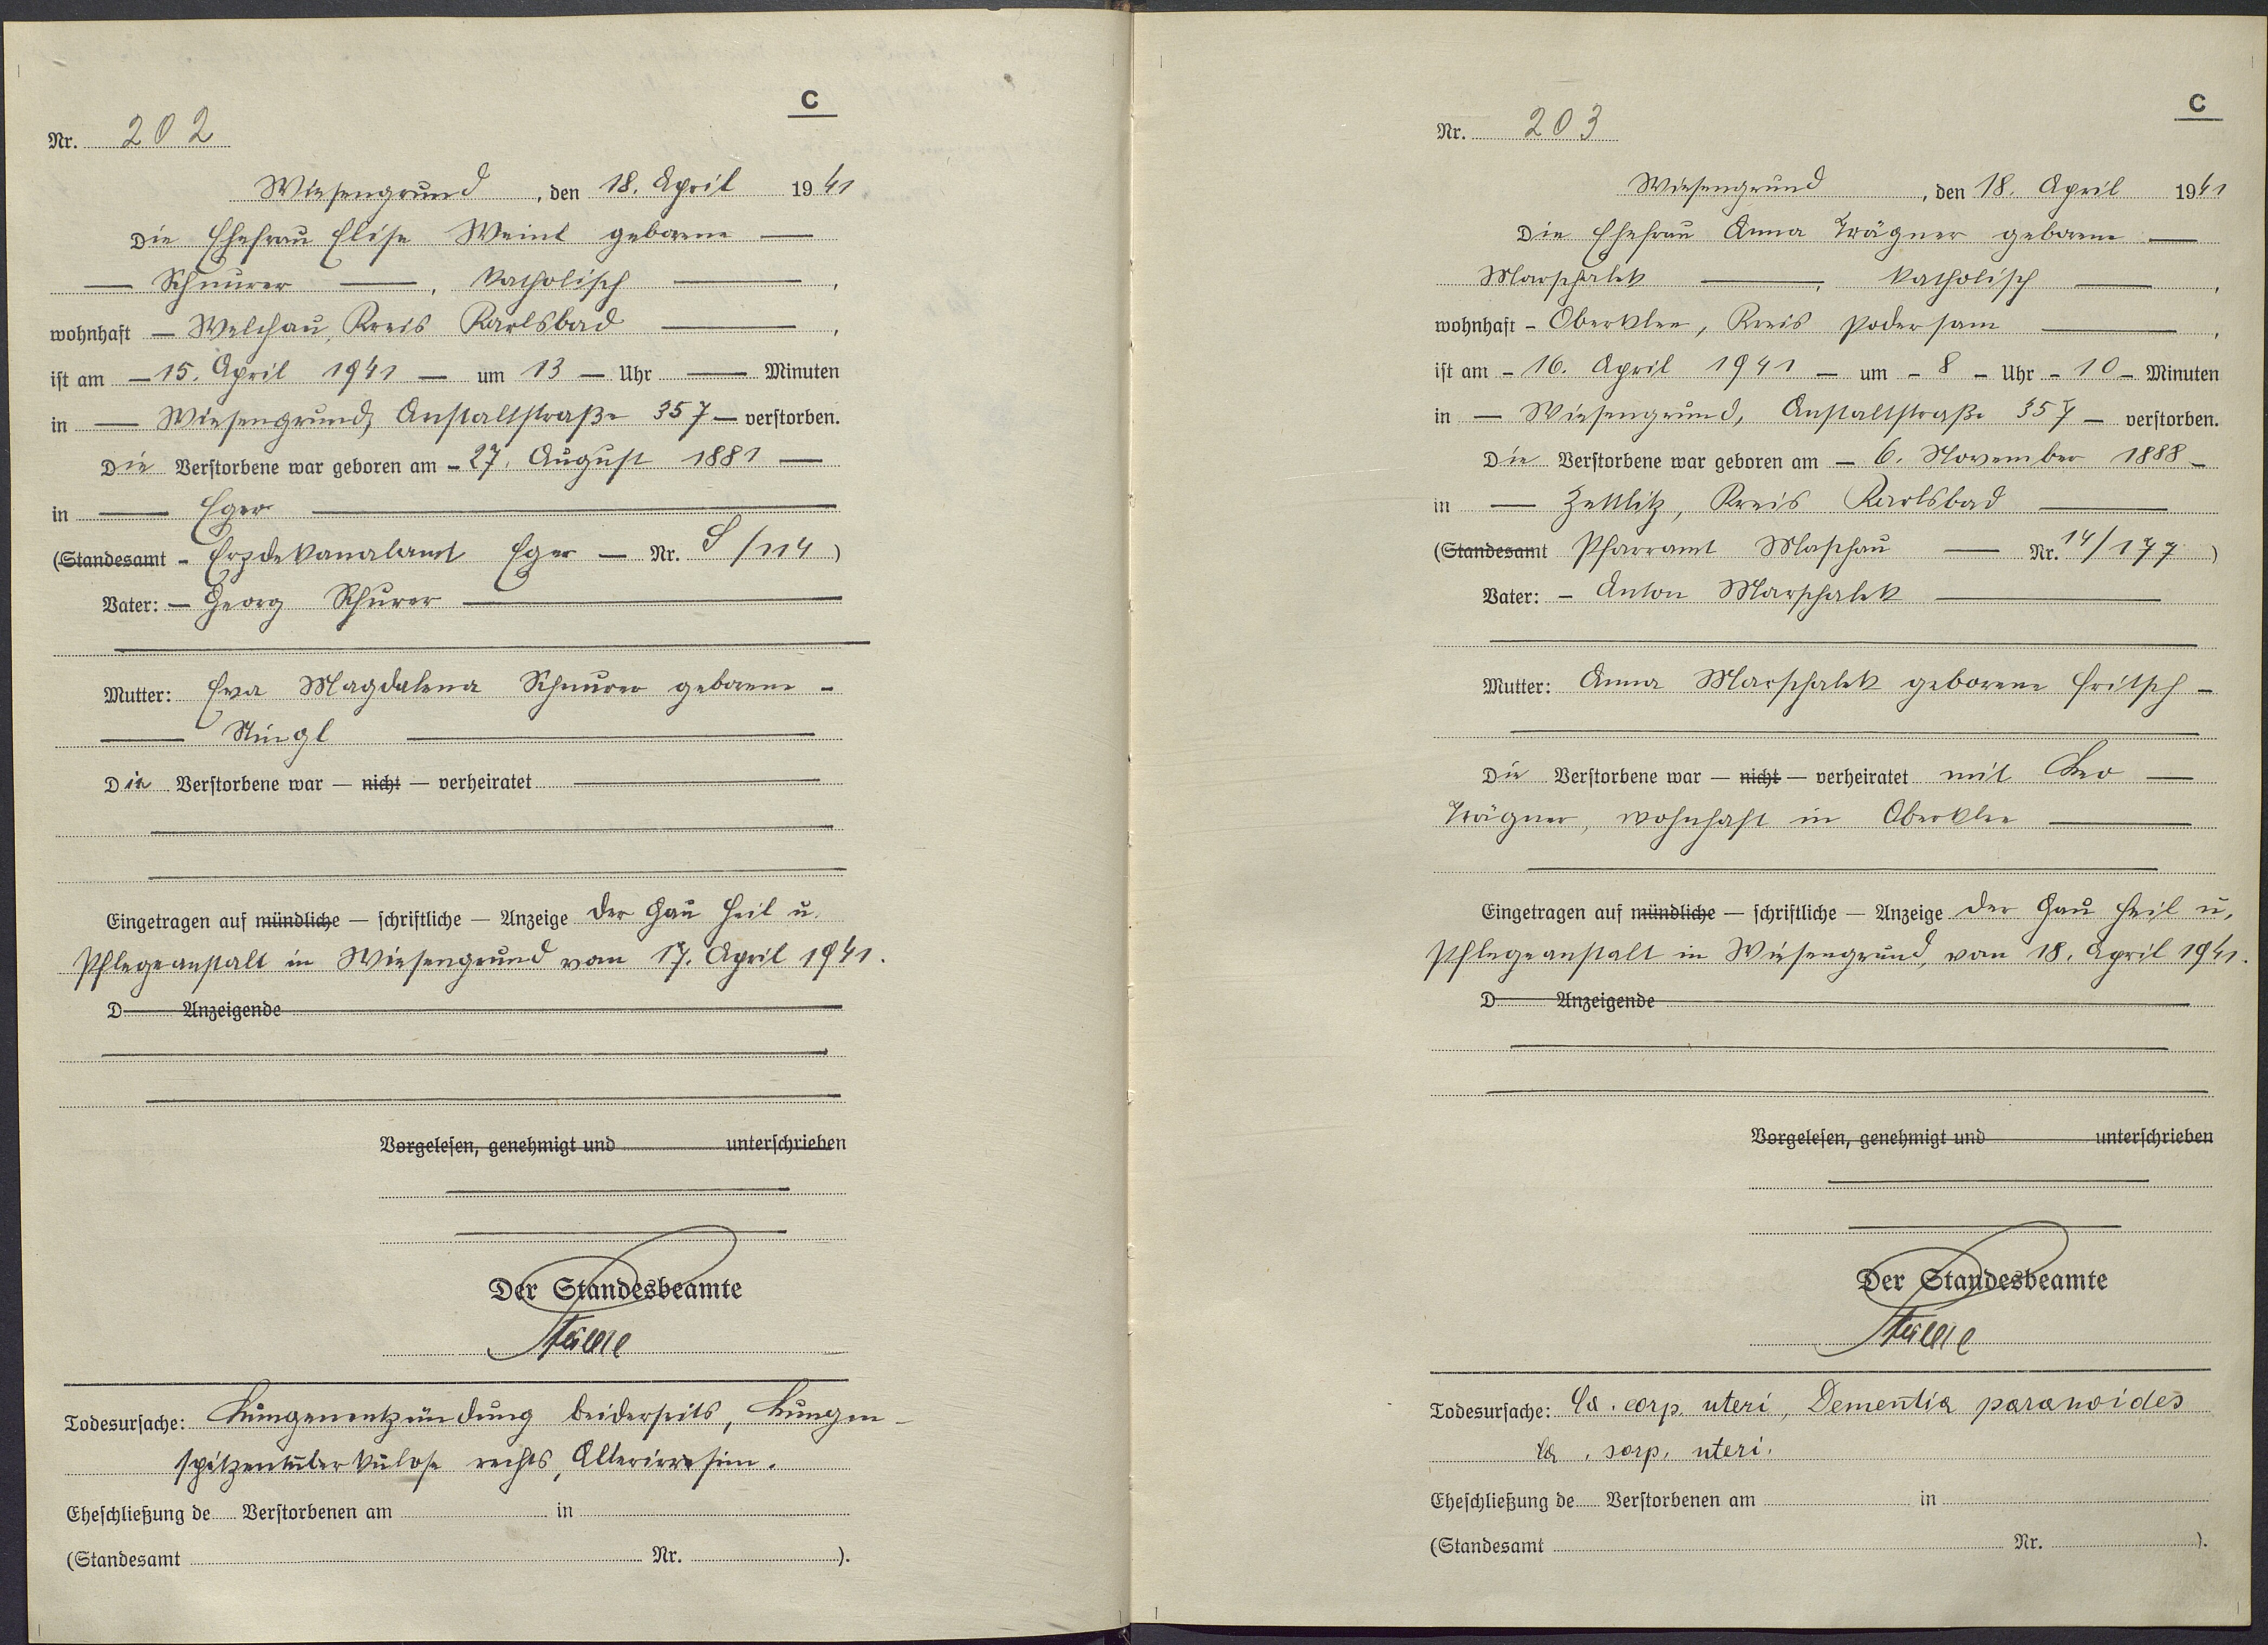 C
Nr. 202
Wiesengrund, den 18. April 1941
Die Ehefrau Elise Weinl geborene —
— Schnurer —, katholisch —,
wohnhaft — Welchau, Kreis Karlsbad —,
ist am — 15. April 1941 — um 13 — Uhr — Minuten
in — Wiesengrund, Anstaltstraße 357 — verstorben.
Die Verstorbene war geboren am — 27. August 1881 —
in — Eger —
(Standesamt — Erzdekanalamt Eger — Nr. S/114)
Vater: — Georg Schurer —
Mutter: Eva Magdalena Schnurer geborene —
—
Die Verstorbene war — nicht — verheiratet —
Eingetragen auf mündliche — schriftliche — Anzeige der Gau Heil u.
Pflegeanstalt in Wiesengrund vom 17. April 1941.
D Anzeigende
Vorgelesen, genehmigt und unterschrieben
Der Standesbeamte
Todesursache: Lungenentzündung beiderseits, Lungen-
spitzentuberkulose rechts, Altersirrsinn.
Eheschließung de Verstorbenen am in
(Standesamt Nr. ).
C
Nr. 203
Wiesengrund, den 18. April 1941
Die Ehefrau Anna Trägner geborene —
Marschalek —, katholisch —,
wohnhaft — Oberklee, Kreis Podersam —,
ist am — 16. April 1941 — um — 8 — Uhr — 10 — Minuten
in — Wiesengrund, Anstaltstraße 357 — verstorben.
Die Verstorbene war geboren am — 6. November 1888 —
in — Zettlitz, Kreis Karlsbad —
(Standesamt Pfarramt Maschau — Nr. 14/177)
Vater: — Anton Marschalek —
Mutter: Anna Marschalek geborene Fritsch —
Die Verstorbene war — nicht — verheiratet mit Leo —
Trägner, wohnhaft in Oberklee —
Eingetragen auf mündliche — schriftliche — Anzeige der Gau Heil u.
Pflegeanstalt in Wiesengrund, vom 18. April 1941.
D Anzeigende
Vorgelesen, genehmigt und unterschrieben
Der Standesbeamte
Todesursache: Ca. corp. uteri, Dementia paranoides
Ca. corp. uteri.
Eheschließung de Verstorbenen am in
(Standesamt Nr. ).